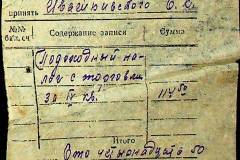 принять Ивашкивского С. С.
№№ Содержание записи Сумма
вкл. сч.
Подоходный на-
лог с торговли
за IV кв. 114 50
Итого
Сто четырнадцать 50